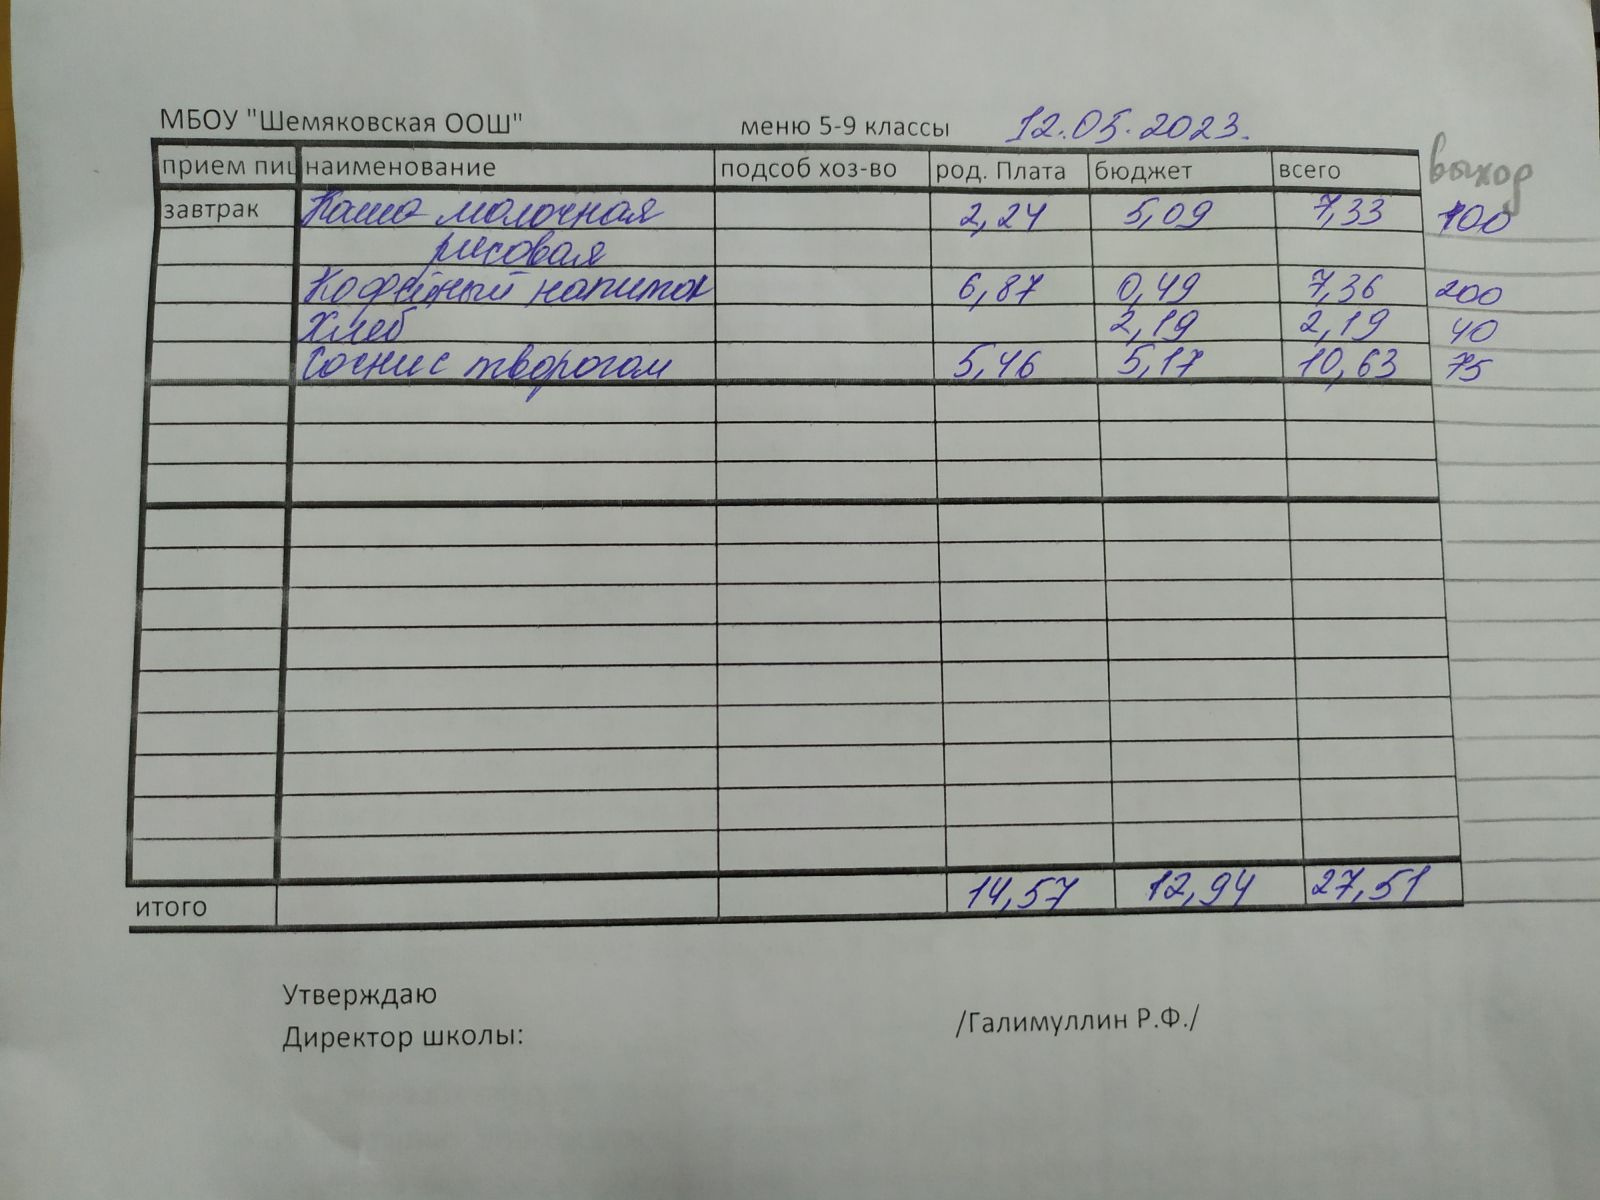 МБОУ "Шемяковская ООШ" меню 5-9 классы 12.05.2023.
прием пищ наименование подсоб хоз-во род. Плата бюджет всего выход
завтрак Каша молочная 2,24 5,09 7,33 100
рисовая
Кофейный напиток 6,87 0,49 7,36 200
Хлеб 2,19 2,19 40
Сочни с творогом 5,46 5,17 10,63 75
итого 14,57 12,94 27,51
Утверждаю
Директор школы: /Галимуллин Р.Ф./